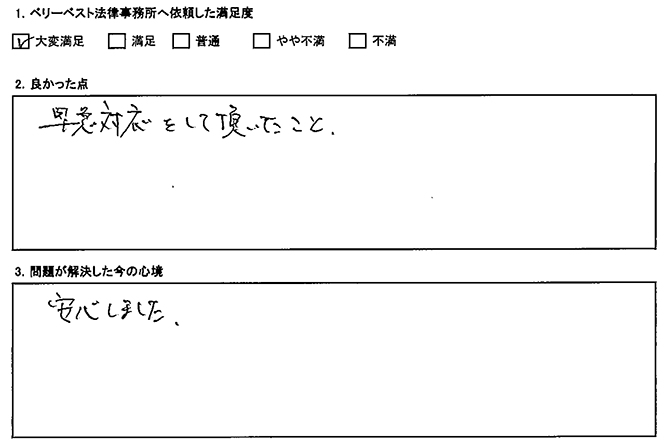 1. ベリーベスト法律事務所へ依頼した満足度
☑大変満足 □満足 □普通 □やや不満 □不満
2. 良かった点
早急対応をして頂いたこと.
3. 問題が解決した今の心境
安心しました.